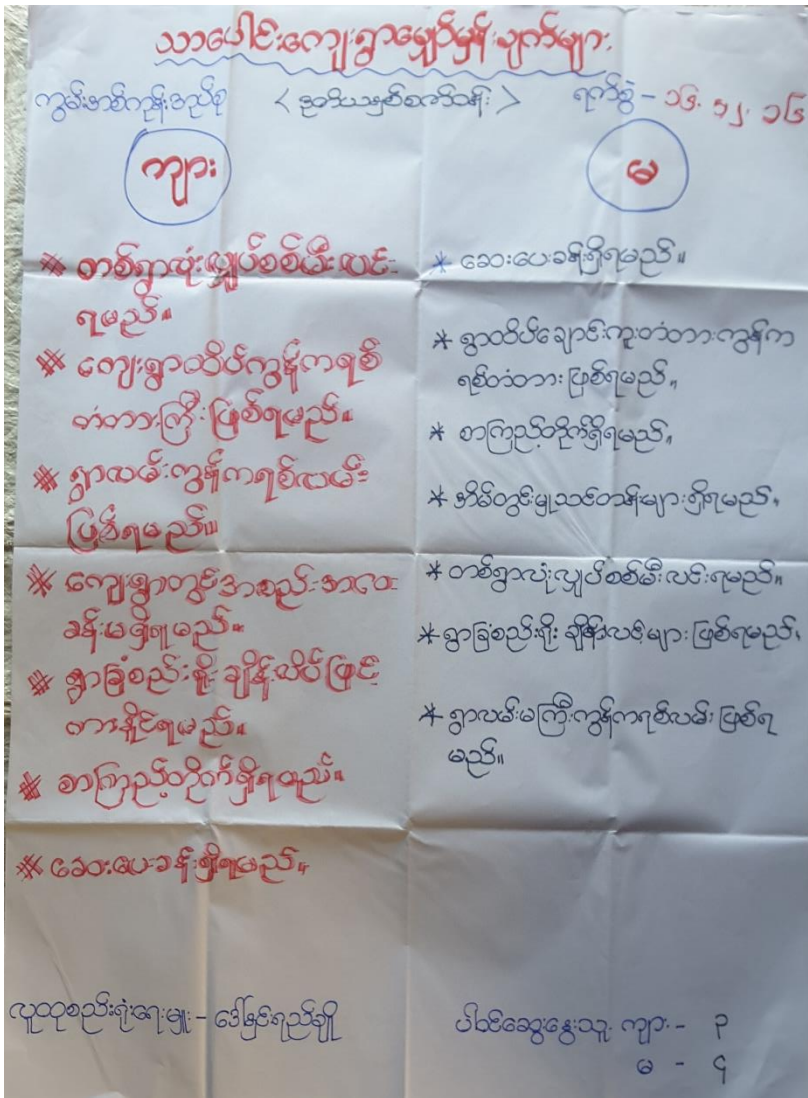 သာပေါင်းကျေးရွာမျှော်မှန်းချက်များ
ကွမ်းတစ်ကုန်းအုပ်စု
< ဒုတိယနှစ်စက်ဝန်း >
ရက်စွဲ - ၁၆. ၁၂. ၁၆
ကျား
* တစ်ရွာလုံးလျှပ်စစ်မီးလင်း
ရမည်။
* ကျေးရွာထိပ်ကွန်ကရစ်
တံတားကြီးဖြစ်ရမည်။
* ရွာလမ်းကွန်ကရစ်လမ်း
ဖြစ်ရမည်။
* ကျေးရွာတွင်အစည်းအဝေး
ခန်းမရှိရမည်။
* ရွာခြံစည်းရိုးချိန်းလိပ်ဖြင့်
ကာနိုင်ရမည်။
* စာကြည့်တိုက်ရှိရမည်။
* ဆေးပေးခန်းရှိရမည်။
မ
* ဆေးပေးခန်းရှိရမည်။
* ရွာထိပ်ချောင်းကူးတံတားကွန်က
ရစ်တံတားဖြစ်ရမည်။
* စာကြည့်တိုက်ရှိရမည်။
* အိမ်တွင်းမှုသင်တန်းများရှိရမည်။
* တစ်ရွာလုံးလျှပ်စစ်မီးလင်းရမည်။
* ရွာခြံစည်းရိုး များဖြစ်ရမည်။
* ရွာလမ်းမကြီးကွန်ကရစ်လမ်းဖြစ်ရ
မည်။
လူထုစည်းရုံးရေးမှူး - ဒေါ်နှင်းရည်ချို
ပါဝင်ဆွေးနွေးသူ ကျား - ၃
မ - ၄